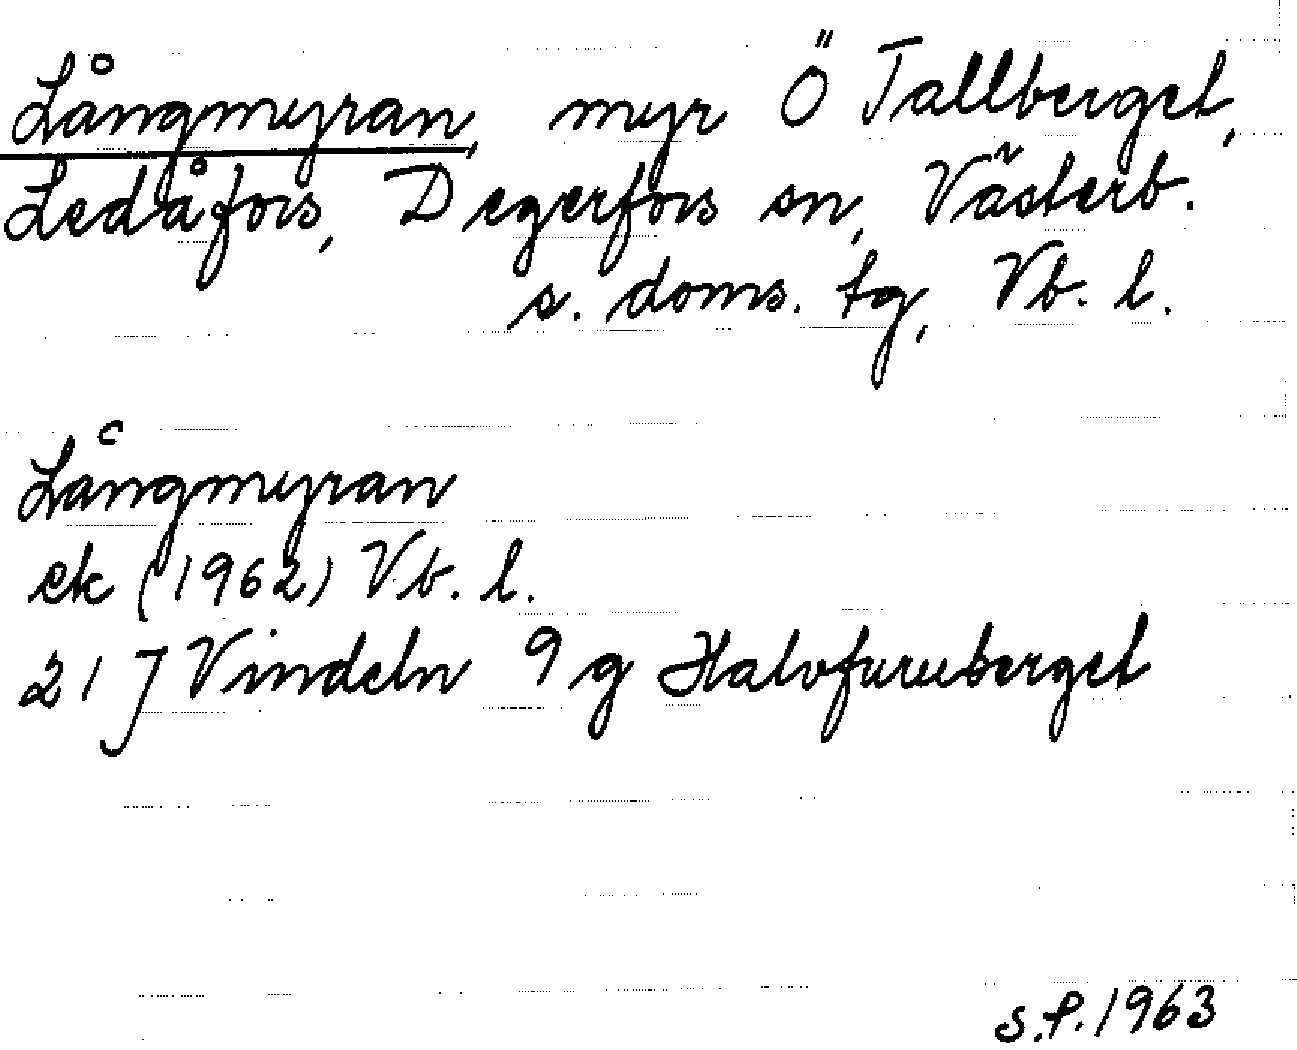 Långmyran, myr Ö Tallberget,
Ledåfors, Degerfors sn, Västerb.
s. doms. tg, Vb. l.
Långmyran
ek (1962) Vb. l.
21 J Vindeln 9 g Halvfuruberget
S.P. 1963